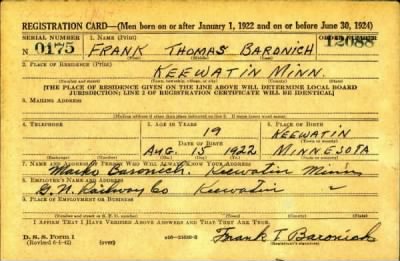 REGISTRATION CARD—(Men born on or after January 1, 1922 and on or before June 30, 1924)
SERIAL NUMBER 1. NAME (Print) ORDER NUMBER
No 0175 FRANK THOMAS BARONICH 12088
(First) (Middle) (Last)
2. PLACE OF RESIDENCE (Print)
KEEWATIN MINN.
(Number and street) (Town, township, village, or city) (County) (State)
[THE PLACE OF RESIDENCE GIVEN ON THE LINE ABOVE WILL DETERMINE LOCAL BOARD
JURISDICTION; LINE 2 OF REGISTRATION CERTIFICATE WILL BE IDENTICAL]
3. MAILING ADDRESS
[Mailing address if other than place indicated on line 2. If same insert word same]
4. TELEPHONE 5. AGE IN YEARS 6. PLACE OF BIRTH
19 KEEWATIN
DATE OF BIRTH
AUG. 15 1922 MINNESOTA
(Mo.) (Day) (Yr.)
7. NAME AND ADDRESS OF PERSON WHO WILL ALWAYS KNOW YOUR ADDRESS
Baronich. Keewatin Minn
8. EMPLOYER'S NAME AND ADDRESS
G. N. Railway Co Keewatin "
9. PLACE OF EMPLOYMENT OR BUSINESS
(Number and street or R. F. D. number) (Town) (County) (State)
I AFFIRM THAT I HAVE VERIFIED ABOVE ANSWERS AND THAT THEY ARE TRUE.
D. S. S. Form 1
(Revised 6-1-42) (over)
Frank T Baronich
(Registrant's signature)